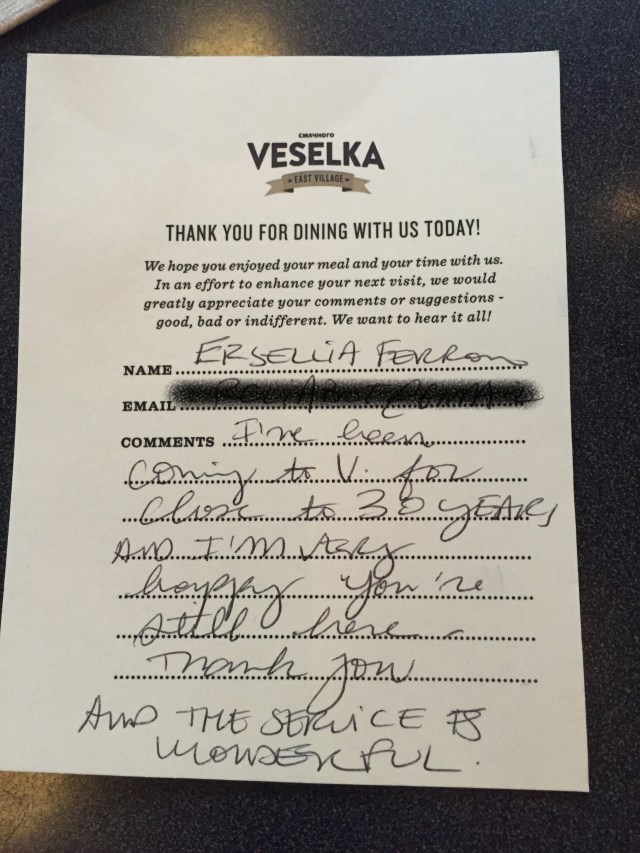 СМАЧНОГО
VESELKA
EAST VILLAGE
THANK YOU FOR DINING WITH US TODAY!
We hope you enjoyed your meal and your time with us.
In an effort to enhance your next visit, we would
greatly appreciate your comments or suggestions -
good, bad or indifferent. We want to hear it all!
NAME ERSELLIA FERRON
EMAIL
COMMENTS I've been
coming to V. for
close to 30 YEARS
AND I'M VERY
happy you're
still here.
Thank you
AND THE SERVICE IS
WONDERFUL.